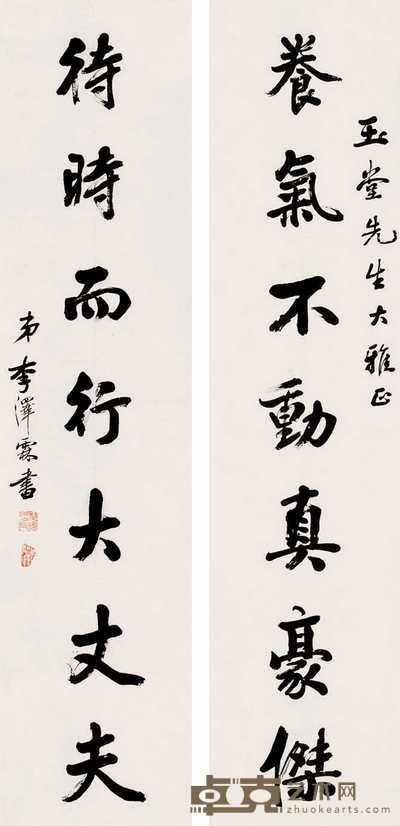 玉堂先生大雅正
養氣不動真豪傑
待時而行大丈夫
弟李澤霖書
卓克艺术网
zhuokearts.com